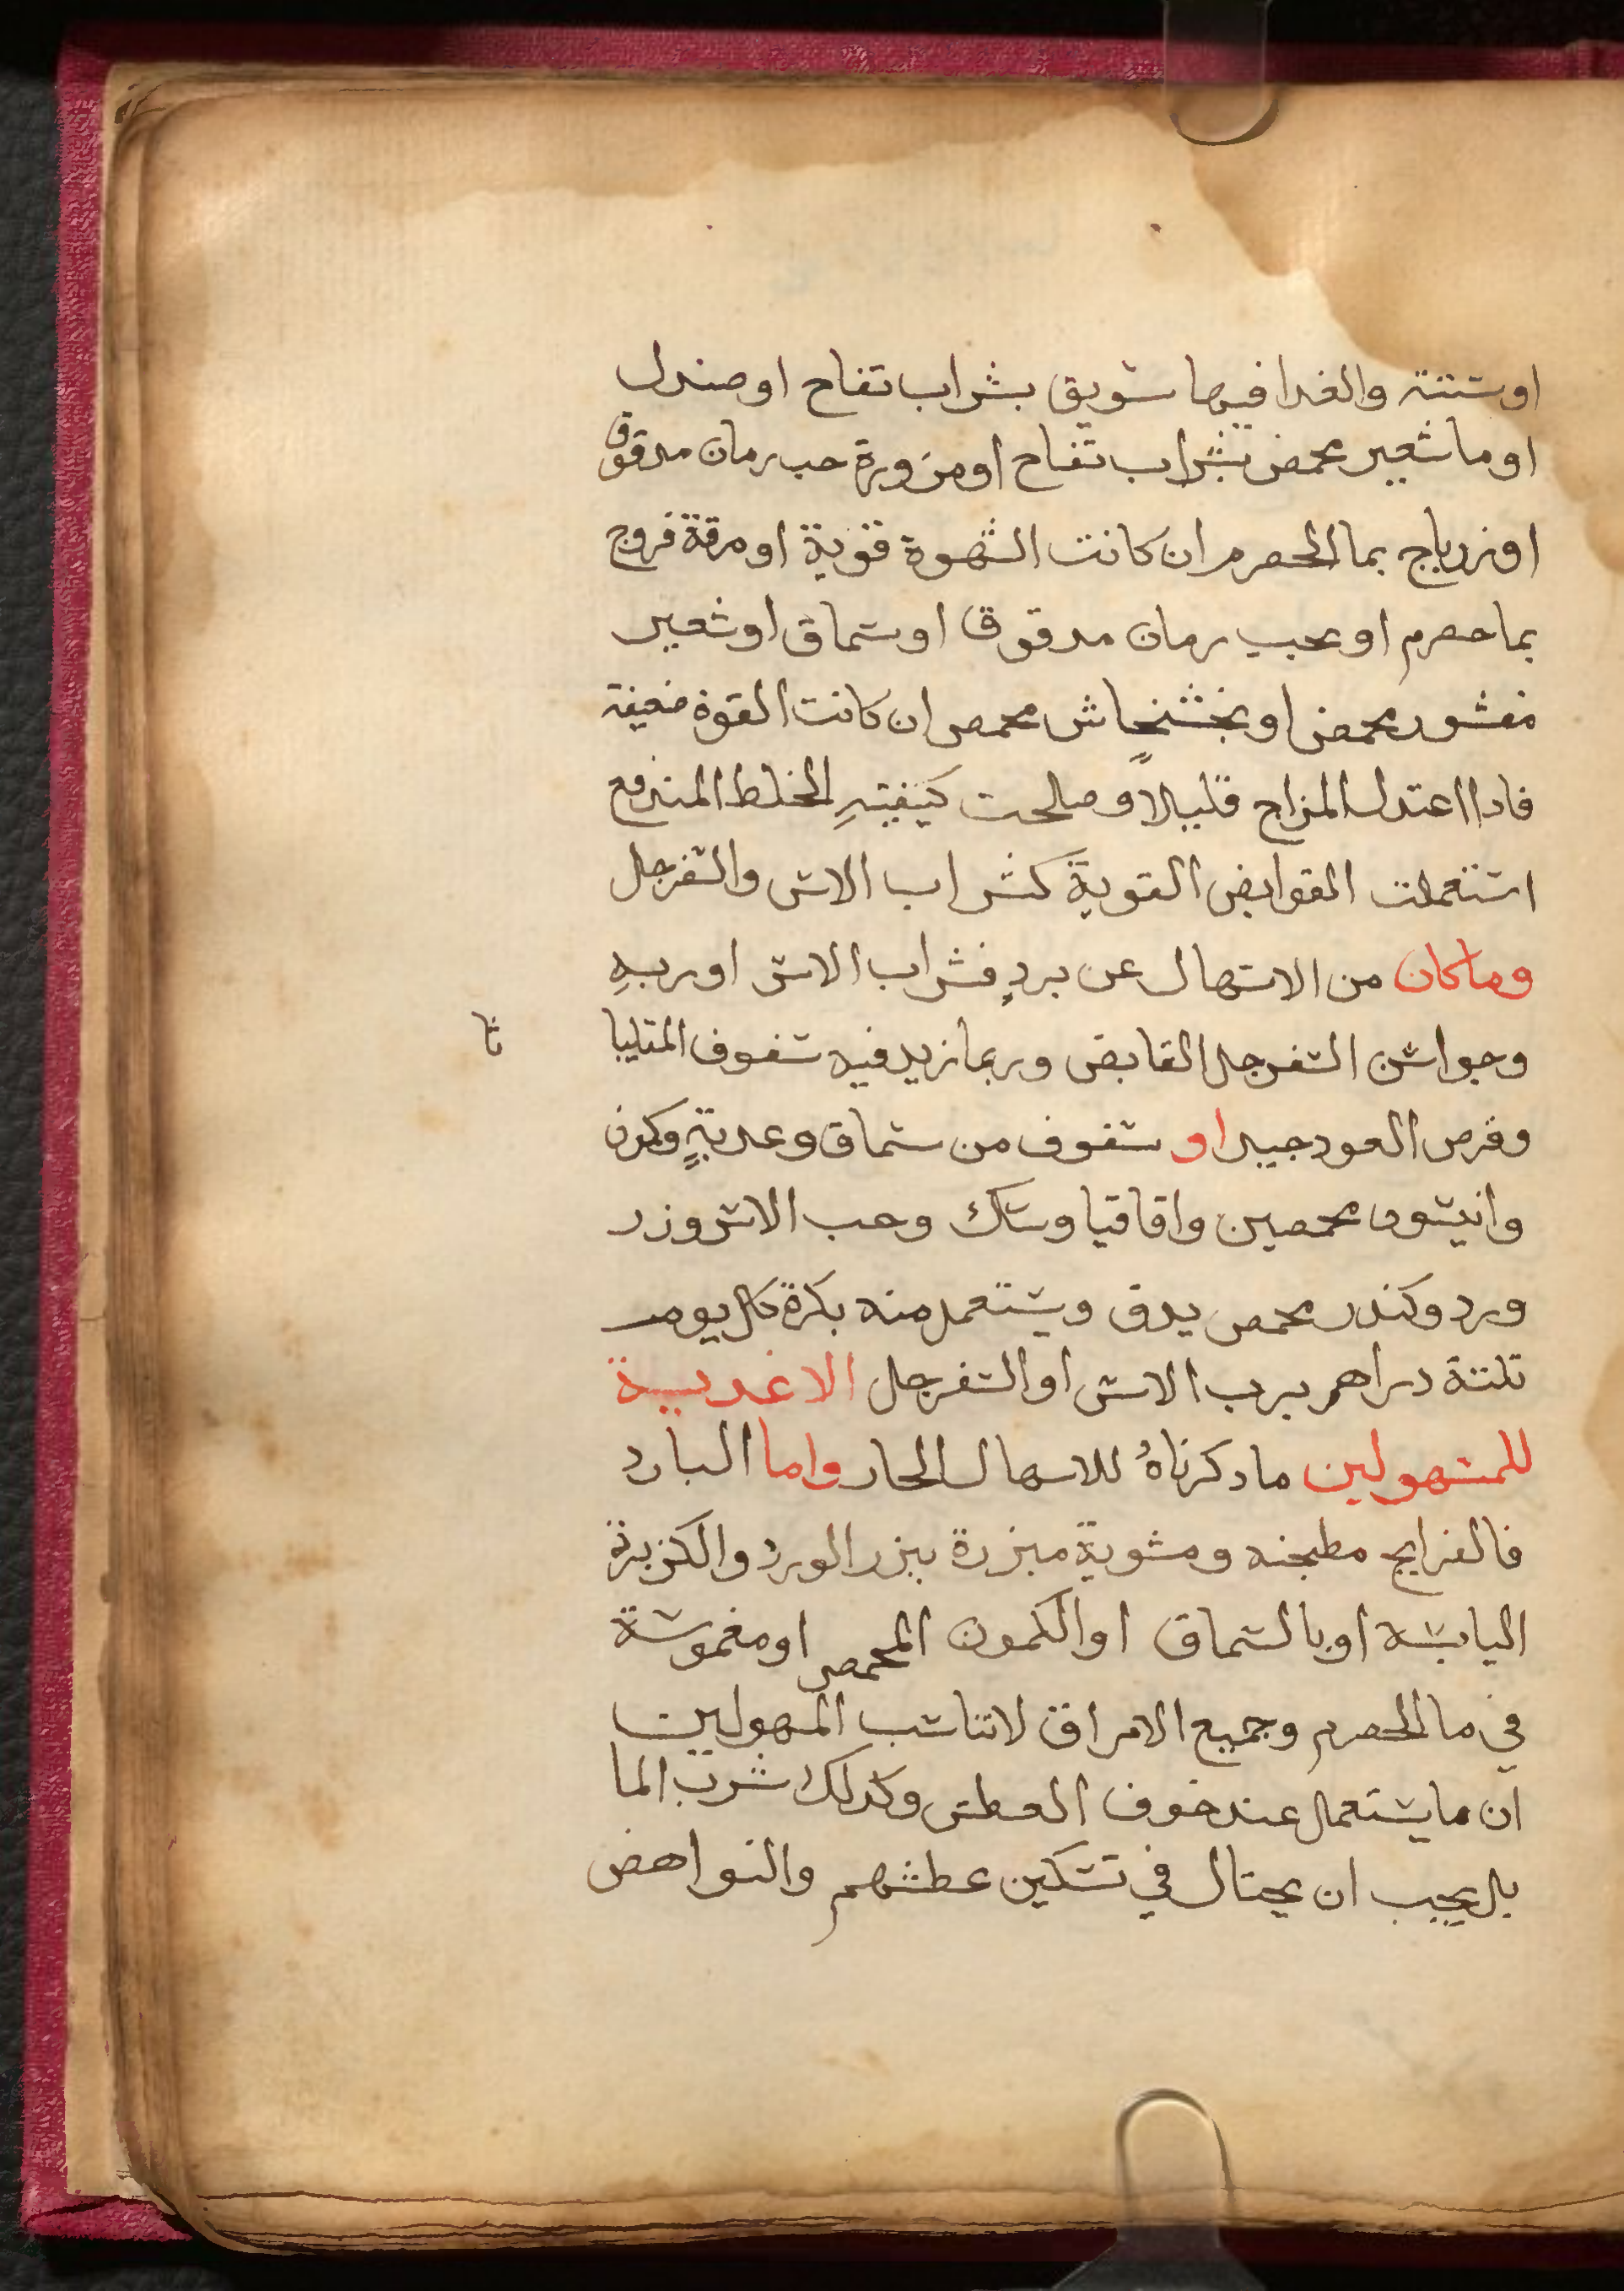 او ستة والغدا فيها سويق بشراب تفاح او صندل
او ما شعير محمض بشراب تفاح او مزورة حب رمان مدقوق
او زرباج بما الحصرم ان كانت الشهوة قوية او مرقة فروج
بما حصرم او بحب رمان مدقوق او سماق او شعير
مقشور محمض او بخشخاش محمص ان كانت القوة ضعيفة
فادا اعتدل المزاج قليلاً وصلحت كيفيتهِ الخلط المندفع
استعملت القوابض القوية كشراب الاس والسفرجل
وما كان من الاسهال عن بردٍ فشراب الاس او ربهِ
وجوارشن السفرجل القابض وربما زيد فيه سفوف المقليا
ثا
وقرص العود جيد او سفوف من سماق وعدبةٍ وكمون
وانيسون محمصين واقاقيا وسك وحب الاس وزر
ورد وكندر محمص يدق ويستعمل منه بكرة كل يوم
تلتة دراهم برب الاس او السفرجل الاغدية
للمسهولين ما دكرناهُ للاسهال الحار واما البارد
فالفراريج مطجنه ومشوية مبزرة ببزر الورد والكزبرة
اليابسه او بالسماق او الكمون المحمص او مغموسة
في ما الحصرم وجميع الامراق لا تناسب المسهولين
ان ما يستعمل عند خوف العطش وكدلك شرب الما
بل يجب ان يحتال في تسكين عطشهم والنواهض